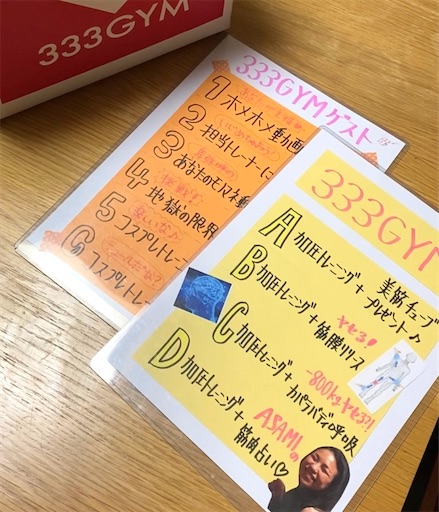 333GYM
333GYMゲスト
1 ホメホメ動画
2 担当トレーナーに
3 あなたのモノマネ動
4 地獄の限界
5 コスプレトレーニ
6 コスプレトレー
333GYM
A 加圧トレーニング+
美筋チューブ
プレゼント♪
B 加圧トレーニング+
ヤセる!
筋膜リリース
C 加圧トレーニング+
-800kgヤセる?!
カパラバディ呼吸
D 加圧トレーニング+
ASAMIの
筋肉占い♡